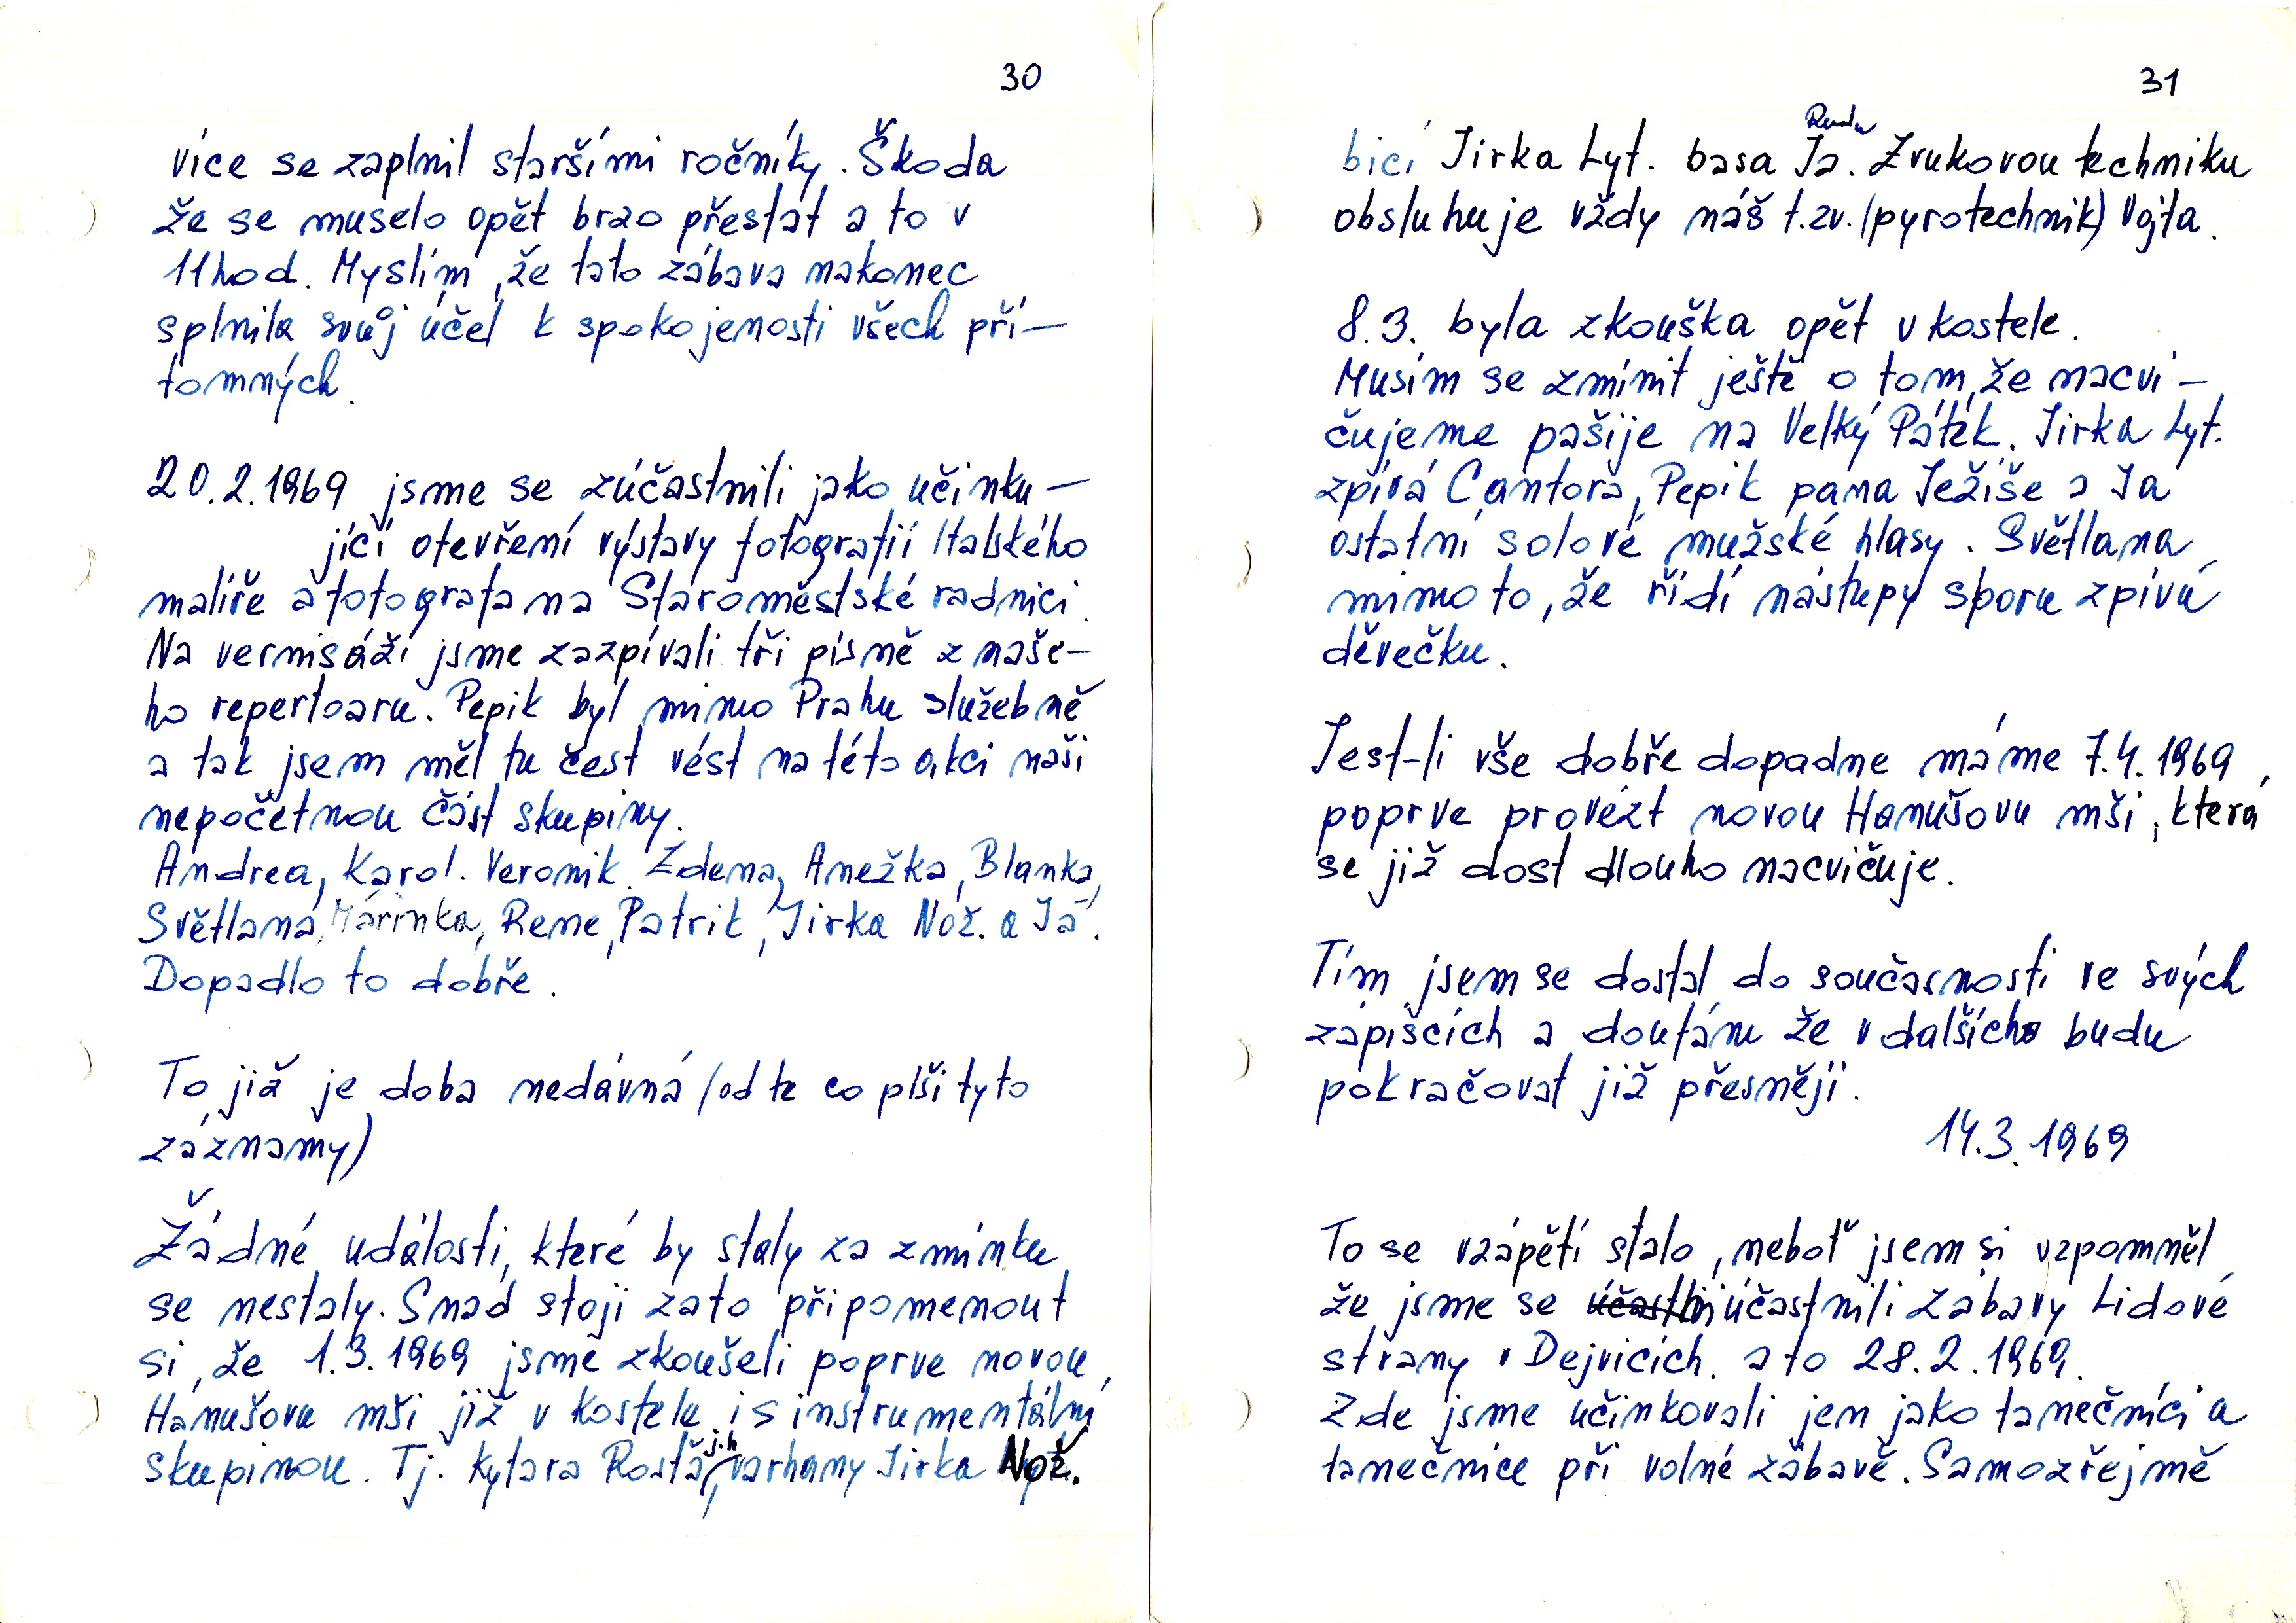 30
více se zaplnil staršími ročníky. Škoda
že se muselo opět brzo přestat a to v
11hod. Myslím, že tato zábava nakonec
splnila svůj účel k spokojenosti všech pří–
tomných.
20.2.1969 jsme se zúčastnili jako učinku–
jící otevření výstavy fotografií Italského
malíře a fotografa na Staroměstské radnici.
Na vernisáži jsme zazpívali tři písně z naše–
ho repertoaru. Pepik byl mimo Prahu služebně
a tak jsem měl tu čest vést na této akci naši
nepočetnou část skupiny.
Andrea, Karol. Veronik. Zdena, Anežka, Blanka,
Světlana, Márinka, Rene, Patrik, Jirka Nož. a Já.
Dopadlo to dobře.
To již je doba nedávná (od te co píši tyto
záznamy)
Žádné události, které by staly za zmínku
se nestaly. Snad stojí zato připomenout
si, že 1.3.1969 jsme zkoušeli poprve novou
Hanušovu mši již v kostele i s instrumentální
skupinou. Tj. kytara Rosťa j.h, varhany Jirka Nož.
31
bicí Jirka Lyt. basa Ja. Ruda Zvukovou techniku
obsluhuje vždy náš t.zv. (pyrotechnik) Vojta.
8.3. byla zkouška opět v kostele.
Musím se zmínit ještě o tom, že nacvi–
čujeme pašije na Velký Pátek. Jirka Lyt.
zpívá Cantora, Pepik pana Ježíše a Ja
ostatní solové mužské hlasy. Světlana
mimo to, že řídí nástupy sboru zpívá
děvečku.
Jest-li vše dobře dopadne máme 7.4.1969
poprve provézt novou Hanušovu mši, která
se již dost dlouho nacvičuje.
Tím jsem se dostal do současnosti ve svých
zápiscích a doufám že v dalších budu
pokračovat již přesněji.
14.3.1969
To se vzápětí stalo, neboť jsem si vzpomněl
že jsme se účastnili zábavy Lidové
strany v Dejvicích. a to 28.2.1969.
Zde jsme učinkovali jen jako tanečníci a
tanečnice při volné zábavě. Samozřejmě